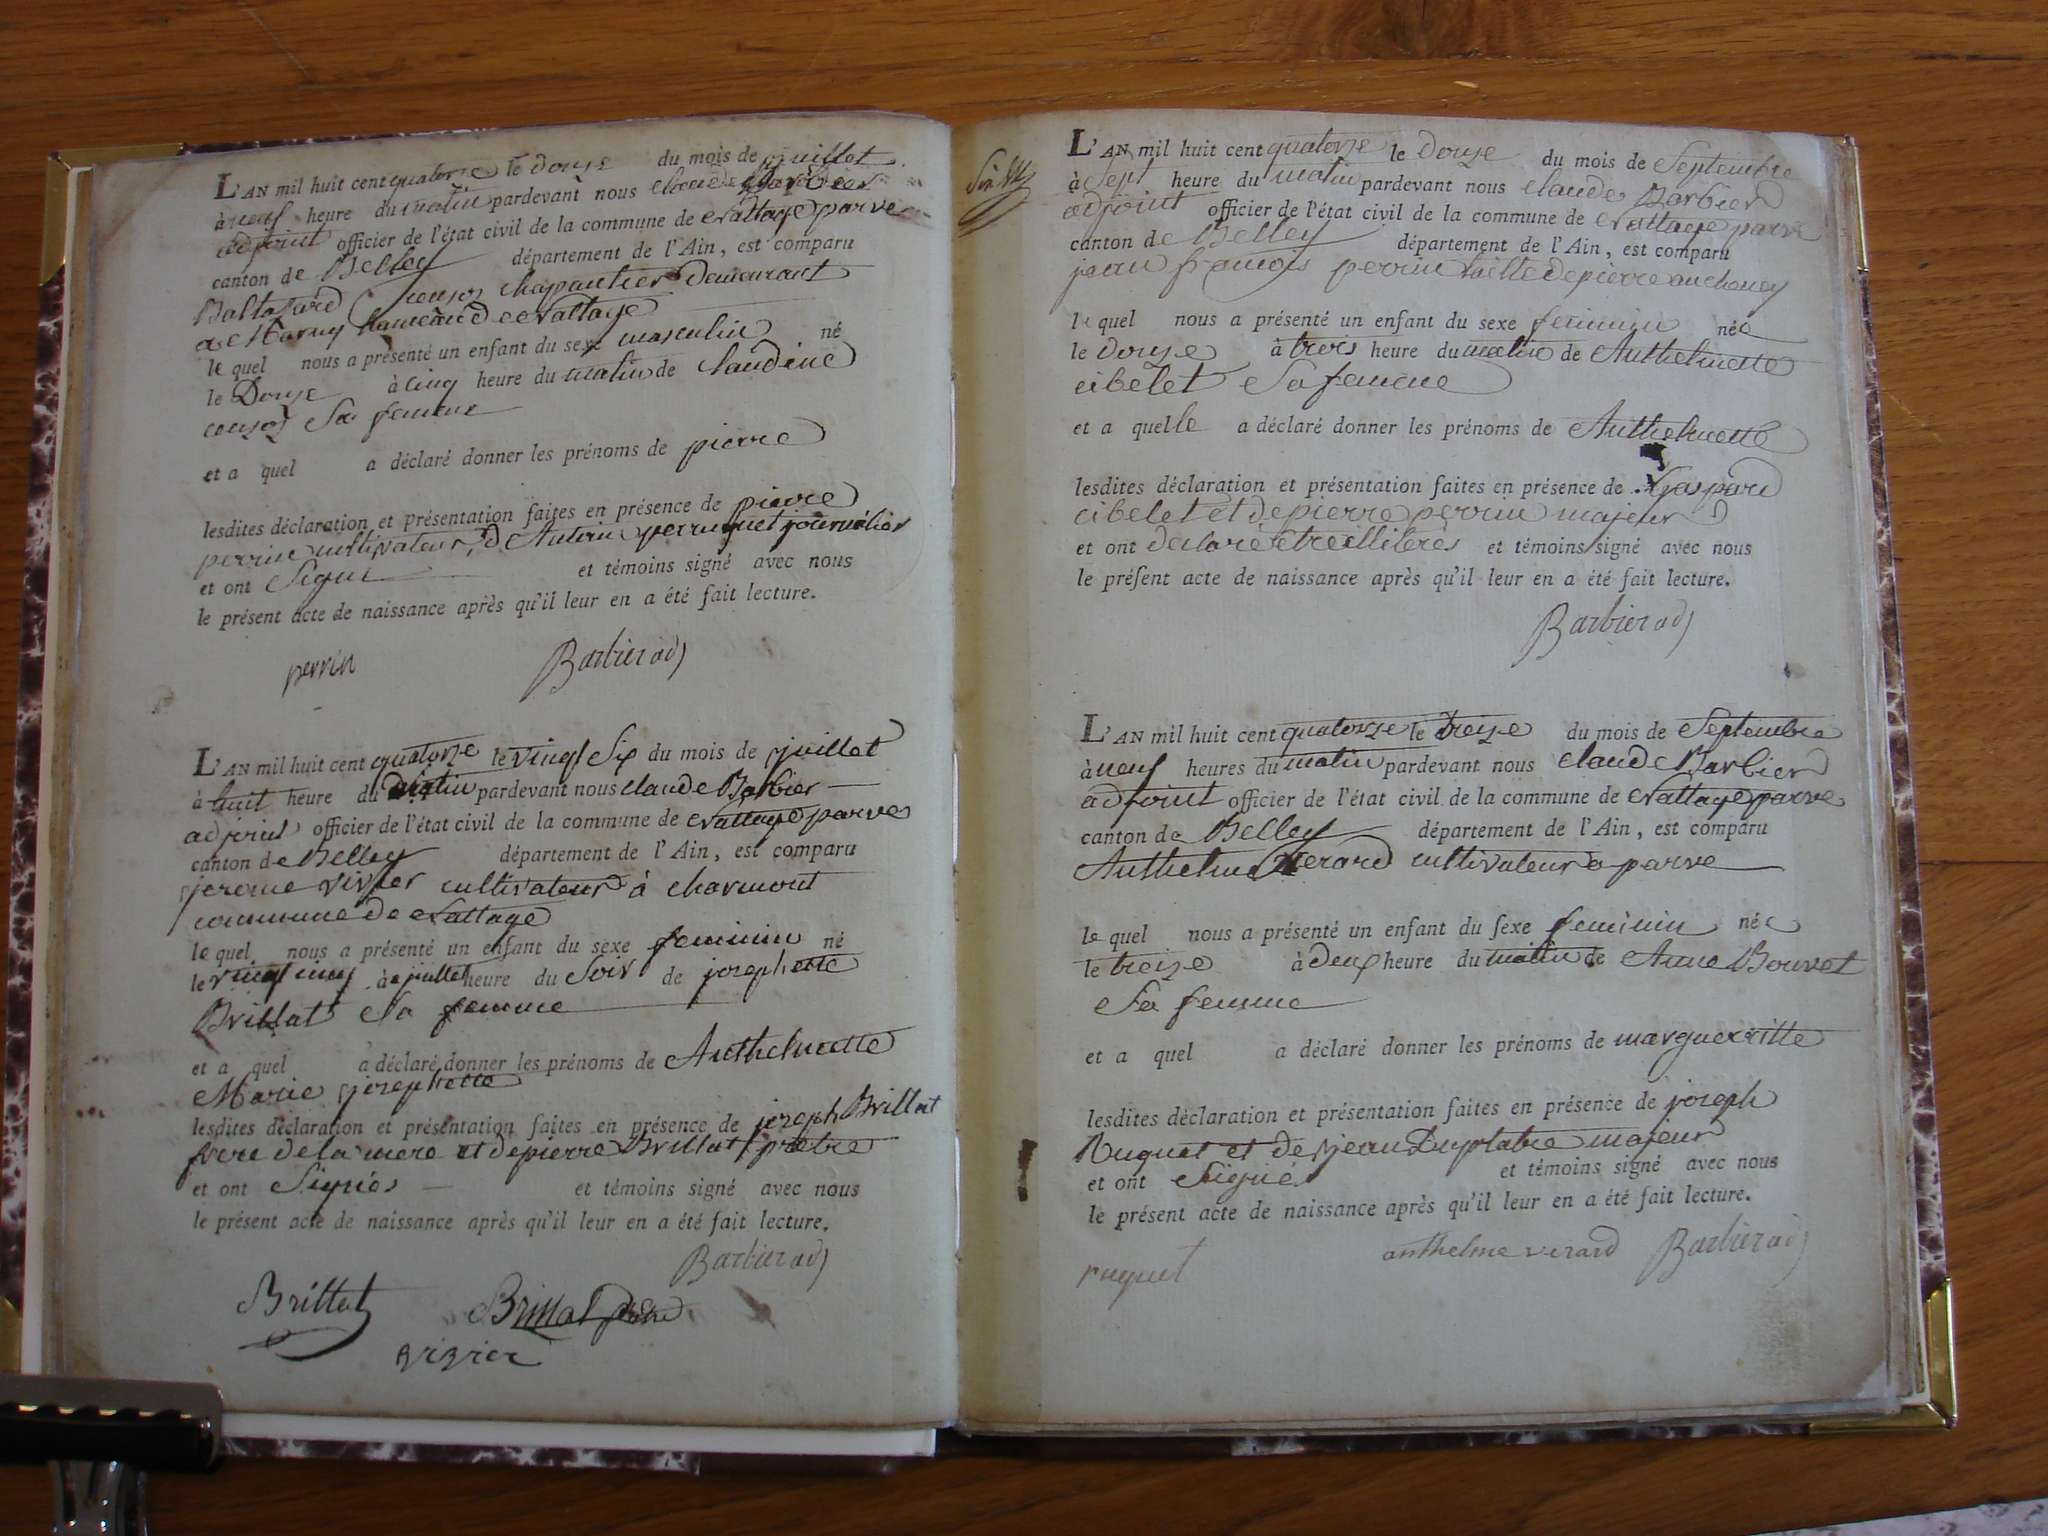 L'AN mil huit cent quatorze le douze du mois de juillet
à neuf heure du matin pardevant nous claude Barbier
adjoint officier de l'état civil de la commune de Nattage parve
canton de Belley département de l'Ain, est comparu
Baltazard chapantier demeurant
a hameaud de Nattage
le quel nous a présenté un enfant du sexe masculin né
le Douze à cinq heure du matin de claudine
Sa femme
et a quel a déclaré donner les prénoms de pierre
lesdites déclaration et présentation faites en présence de pierre
perrin cultivateur, d'Antoine perruquet journalier
et ont Signé et témoins signé avec nous
le présent acte de naissance après qu'il leur en a été fait lecture.
perrin Barbier adj
L'AN mil huit cent quatorze le vingt Six du mois de juillet
à huit heure du matin pardevant nous claude Barbier
adjoint officier de l'état civil de la commune de Nattage parve
canton de Belley département de l'Ain, est comparu
jerome vivier cultivateur à charmont
commune de Nattage
le quel nous a présenté un enfant du sexe feminin né
le vingt cinq à juillet heure du Soir de josephette
Brillat Sa femme
et a quel a déclaré donner les prénoms de Anthelmette
Marie josephette
lesdites déclaration et présentation faites en présence de joseph Brillat
frere de la mere et de pierre Brillat prêtre
et ont Signés et témoins signé avec nous
le présent acte de naissance après qu'il leur en a été fait lecture.
Barbier adj
Brillat Brillat prêtre
L'AN mil huit cent quatorze le douze du mois de Septembre
à Sept heure du matin pardevant nous claude Barbier
adjoint officier de l'état civil de la commune de Nattage parve
canton de Belley département de l'Ain, est comparu
jean françois perrin de pierre
le quel nous a présenté un enfant du sexe feminin née
le douze à trois heure du matin de Anthelmette
cibelet Sa femme
et a quelle a déclaré donner les prénoms de Anthelmette
lesdites déclaration et présentation faites en présence de Gaspard
cibelet et de pierre perrin majeur
et ont declaré etre illiterés et témoins signé avec nous
le présent acte de naissance après qu'il leur en a été fait lecture.
Barbier adj
L'AN mil huit cent quatorze le treize du mois de Septembre
à neuf heures du matin pardevant nous claude Barbier
adjoint officier de l'état civil de la commune de Nattage parve
canton de Belley département de l'Ain, est comparu
Anthelme Verard cultivateur a parve
le quel nous a présenté un enfant du sexe feminin née
le treize à deux heure du matin de Anne Bouvet
Sa femme
et a quel a déclaré donner les prénoms de marguerritte
lesdites déclaration et présentation faites en présence de joseph
Ruquet et de jean Duplatre majeur
et ont Signé et témoins signé avec nous
le présent acte de naissance après qu'il leur en a été fait lecture.
ruquet anthelme verard Barbier adj